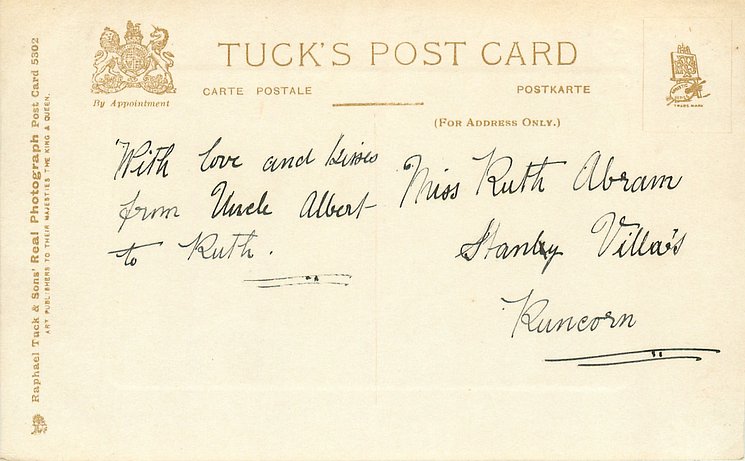 TUCK'S POST CARD
By Appointment
CARTE POSTALE
POSTKARTE
(FOR ADDRESS ONLY.)
TRADE MARK
Raphael Tuck & Sons' Real Photograph Post Card 5302
ART PUBLISHERS TO THEIR MAJESTIES THE KING & QUEEN.
With love and kisses
from Uncle Albert
to Ruth.
Miss Ruth Abram
Stanley Villa's
Runcorn